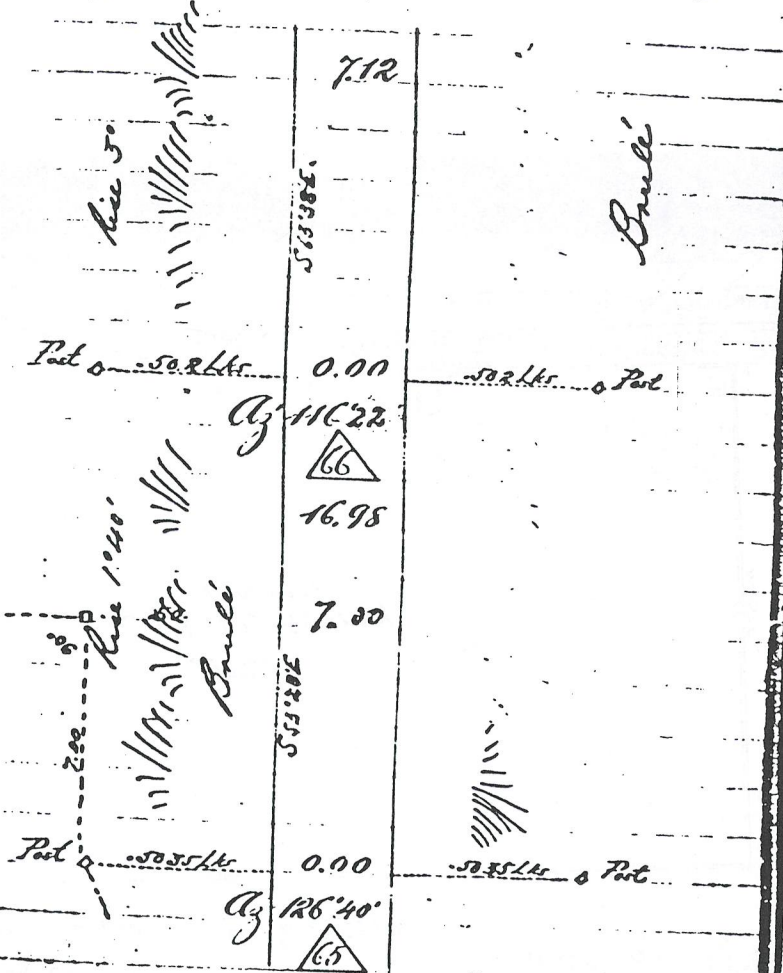 7.12
Rise 5°
S63°38'E.
Brulé
Post 50.2 Lks 0.00 50.2 Lks Post
Az 116°22'
66
16.98
Rise 1°40'
7.00
90°
Brulé
S53°20'E
2.00
Post 50.35 Lks 0.00 50.35 Lks Post
Az 126°40'
65